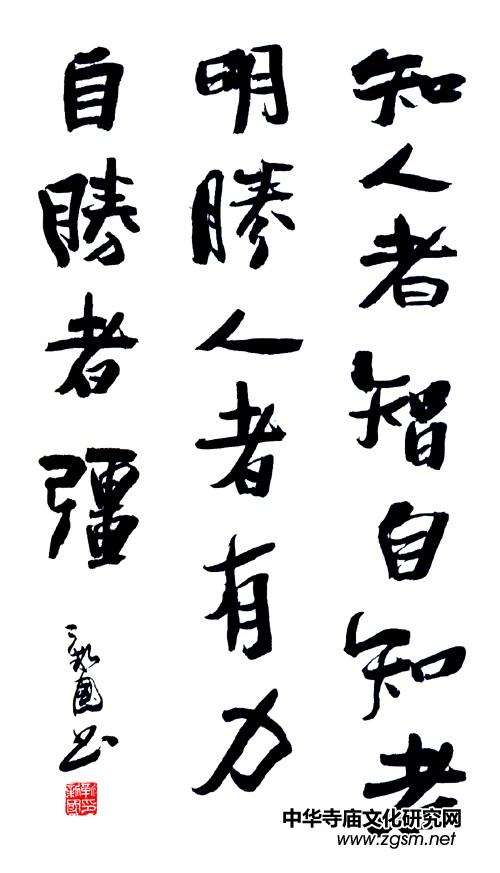 知人者智自知者
明勝人者有力
自勝者彊
國书
中华寺庙文化研究网
www.zgsm.net